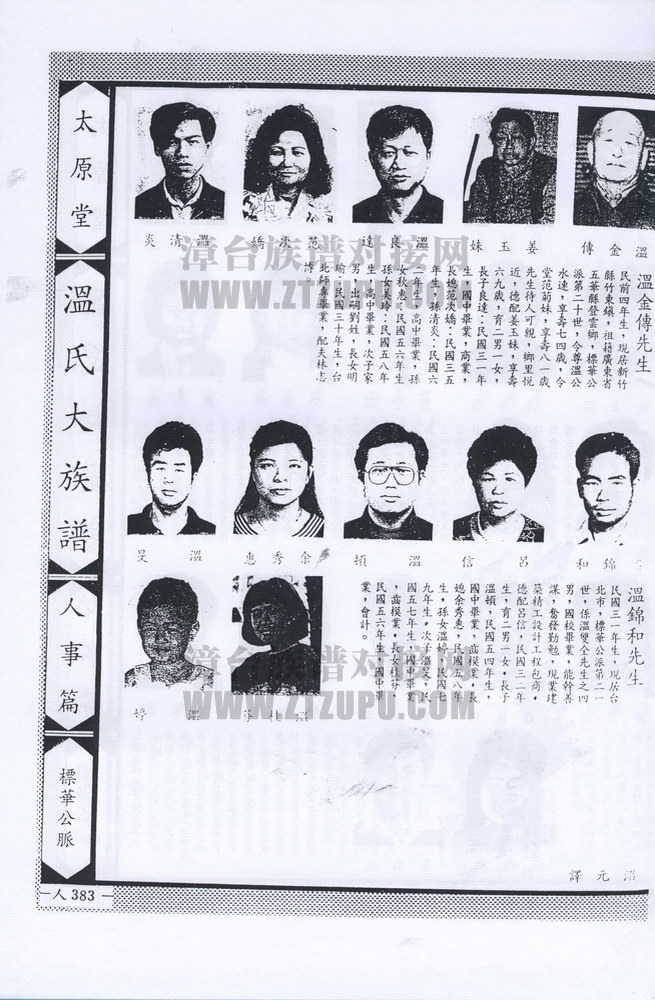 太原堂
溫氏大族譜
人事篇
標華公脈
—人 383—
炎清溫
嬌次范
達良溫
妹玉姜
傳金溫
溫金傳先生
民前四年生，現居新竹
縣竹東鎮，祖籍廣東省
五華縣登雲鄉，標華公
派第二十世，令尊溫公
水連，享壽七四歲，令
堂范菊妹，享壽八一歲
先生待人可親，鄉里悅
近，德配姜玉妹，享壽
六九歲，育二男一女，
長子良達：民國三一年
生，國中畢業，商業，
長媳范次嬌：民國三五
年生，孫清炎：民國六
二年生，高中畢業，孫
女秋惠：民國五六年生
孫女美玲：民國五八年
生，高中畢業，次子家
男，出嗣劉姓，長女明
瑜：民國三十年生，台
北師專畢業，配夫林志
博。
旻溫
惠秀余
頓溫
信呂
和錦
溫錦和先生
民國三一年生，現居台
北市，標華公派第二一
世，係溫雙全先生之四
男，國校畢業，能幹善
謀，奮發勤勉，現業建
築精工設計工程包商。
德配呂信，民國三二年
生，育二男一女。長子
溫頓，民國五四年生，
國中畢業，齒模業。長
媳余秀惠，民國五八年
生，孫女溫婷，民國七
九年生。次子溫旻，民
國五七年生，國中畢業
，齒模業。長女桂芬，
民國五六年生，國中畢
業，會計。
婷溫
芬桂溫
譯元沼
漳台族谱对接网
WWW.ZTZUPU.COM
漳台族谱对接网
WWW.ZTZUPU.COM